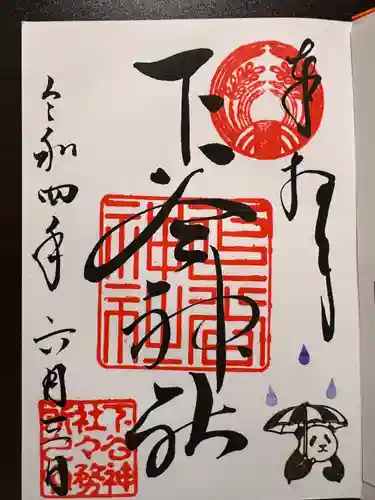 奉拝
下谷神社
下谷神社
下谷神社々務所之印
令和四年六月三日